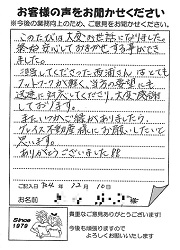 お客様の声をお聞かせください
※今後の業務向上のため、ご意見をお聞かせください
このたびは大変お世話になりました。
最始安心しておまかせする事ができ
ました。
担当してくださった西浦さんはとても
フットワークが軽く、当方の要望にも
迅速に対応してくださり、大変感謝
しております。
またいつかご縁がありましたら、
プレイス不動産様にお願いしたいで
思います。
ありがとうございました!!
ご記入日 R4年 12月 10日
お名前
Since
1979
貴重なご意見ありがとうございます!
今後も頑張りますので
よろしくお願いいたします